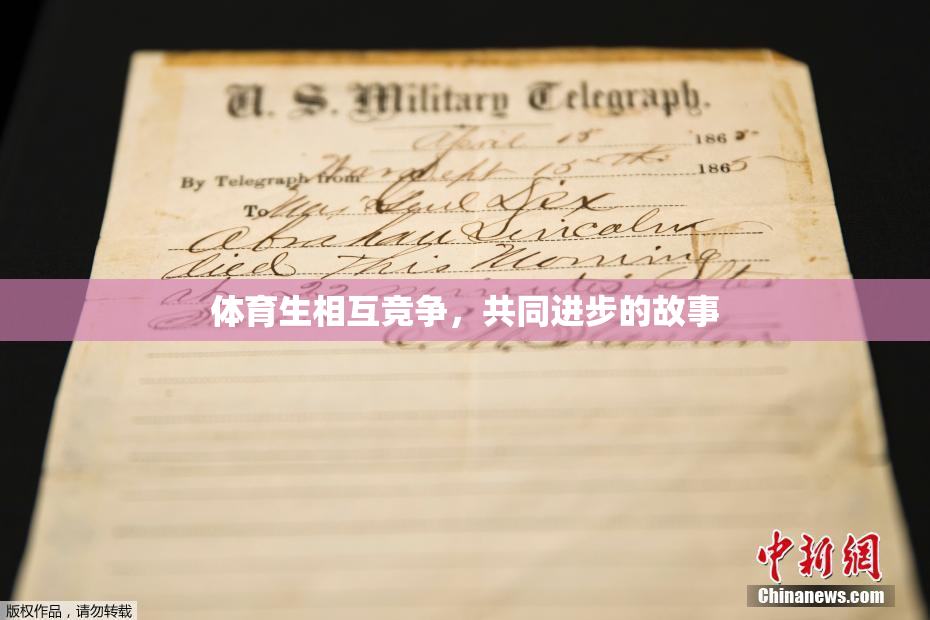 U. S. Military Telegraph.
April 15 1865
By Telegraph from War Dept 15th 1865
To Maj Genl Dix
Abraham Lincoln
died This Morning
at 22 minutes after
体育生相互竞争，共同进步的故事
E. M. Stanton
中新网
Chinanews.com
版权作品，请勿转载